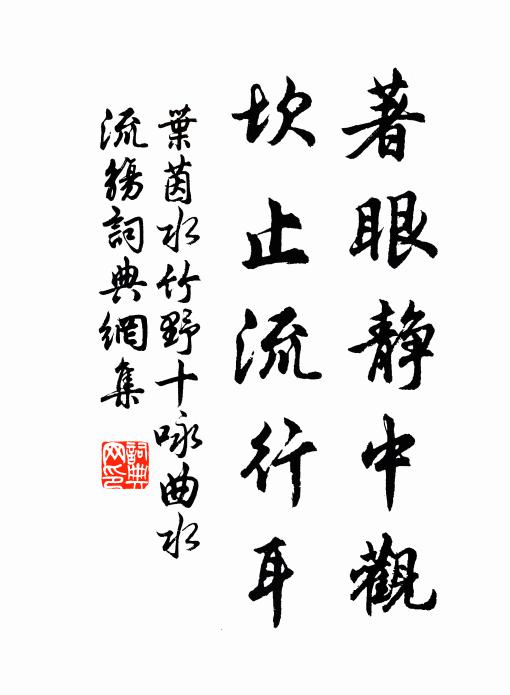 著眼靜中觀
坎止流行耳
葉茵水竹野十咏曲水
流觴詞典網集
詞典網印